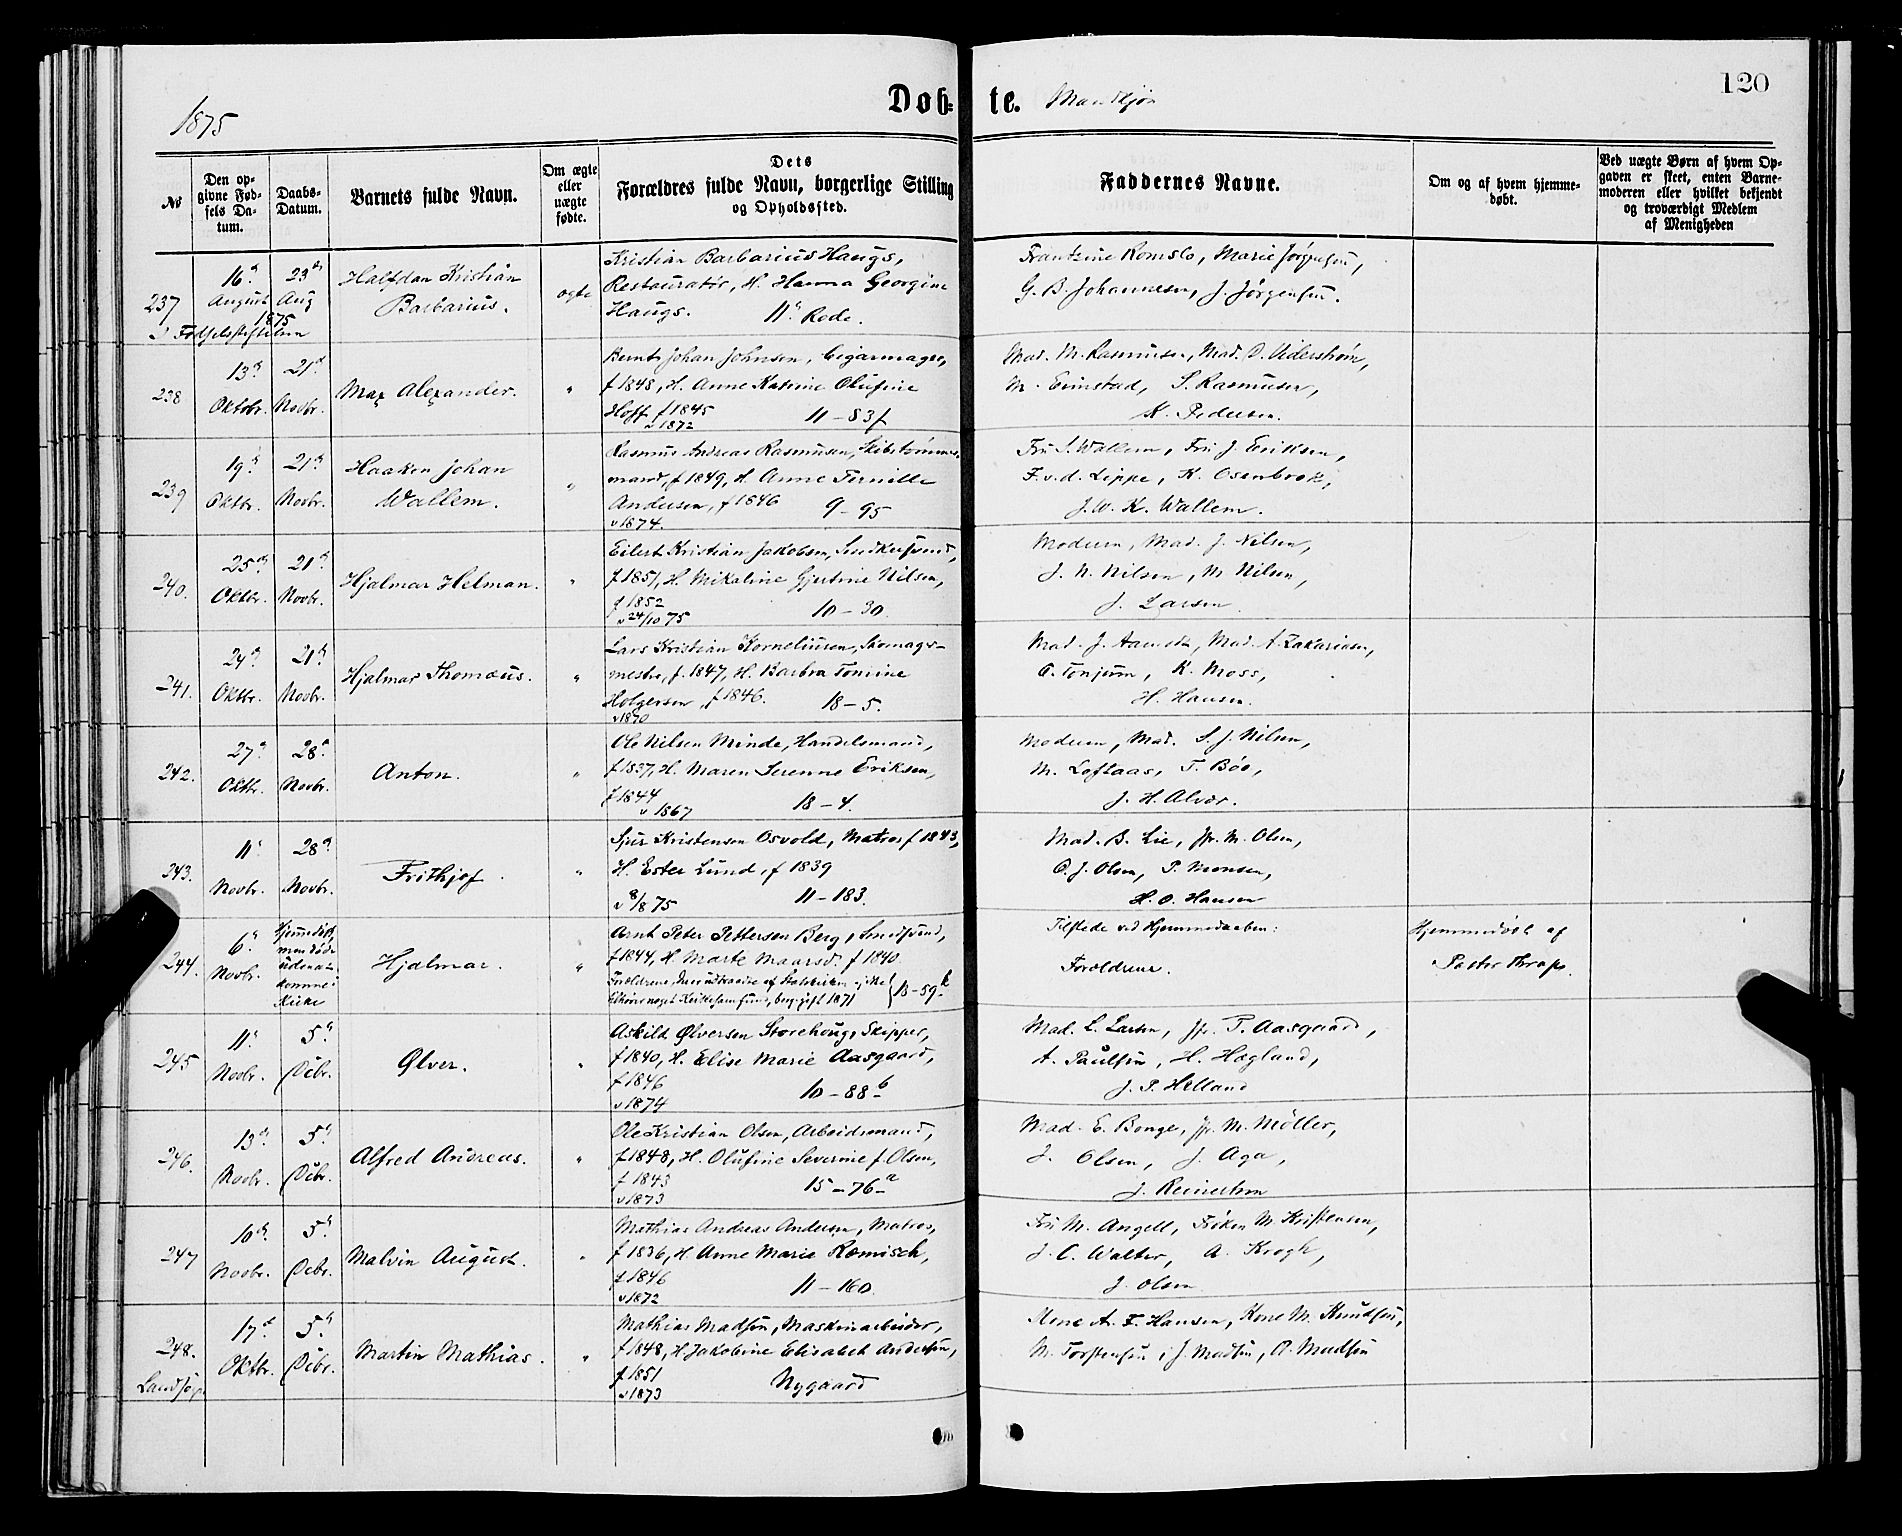 1875
Døb= te. Mandkjøn
120
№
Den op-
givne Fød-
sels Da-
tum.
Daabs-
Datum.
Barnets fulde Navn.
Om ægte
eller
uægte
fødte.
Dets
Forældres fulde Navn, borgerlige Stilling
og Opholdssted.
Faddernes Navne.
Om og af hvem hjemme-
døbt.
Ved uægte Børn af hvem Op-
gaven er skeet, enten Barne-
moderen eller hvilket bekjendt
og troværdigt Medlem
af Menigheden
237
Fødselsstiftelsen
16
August
23
Aug
1875
Halfdan Kristian
Barbarius.
ægte
Kristian Barbarius Haugs,
Restauratør, H. Hanna Georgine
Haugs. 11 Rode.
Frantzine Romslo, Marie Jørgensen,
G. B. Johannesen, J. Jørgensen.
238
13
Oktbr.
21
Novbr.
Max Alexander.
"
Bernt Johan Johnsen, Cigarmager,
f 1848, H. Anne Katrine Olufine
Hoff f 1845
v 1872 11 – 83 f
Mad. M. Rasmusen, Mad. D. Viderstrøm,
M. Erinstad, S. Rasmusen,
K. Pedersen.
239
19
Oktbr.
21
Novbr.
Haaken Johan
Wallem.
"
Rasmus Andreas Rasmusen, Skibstømmer-
mand, f 1849, H. Anne Pernille
Andersen, f 1846 9 – 95
v 1874.
Fru S. Wallem, Fru J. Eriksen,
F. v. d. Lippe, K. Osenbrok,
J. W. K. Wallem.
240.
25
Oktbr.
21
Novbr.
Hjalmar Helman.
"
Eilert Kristian Jakobsen, Snedkersvend,
f 1851, H. Mikaline Gjertine Nilsen,
f 1852
v 24/10 75 10 – 30
Moderen, Mad. J. Nilsen,
J. N. Nilsen, M. Nilsen,
J. Larsen.
241.
24
Oktbr.
21
Novbr.
Hjalmar Thomæus.
"
Lars Kristian Korneliusen, Skomager-
mester, f. 1847, H. Barbra Tomine
Holgersen, f 1846. 18 – 5.
v 1870
Mad. J. Aamodt, Mad. A. Zakariasen,
O. Tonjum, K. Moss,
H. Hansen.
242.
27
Oktbr.
28
Novbr.
Anton.
"
Ole Nilsen Minde, Handelsmand,
f 1837, H. Maren Serenne Eriksen,
f 1844
v 1867 18 – 4.
Moderen, Mad. S. J. Nilsen,
M. Loftaas, T. Bøe,
J. H. Alvær.
243.
11
Novbr.
28
Novbr.
Frithjof.
"
Sjur Kristensen Osvold, Matros f 1843,
H. Ester Lund, f 1839
v 8/8 75 11 – 183.
Mad. B. Lie, Jfr. M. Olsen,
O. J. Olsen, P. Monsen,
H. O. Hansen
244.
6
Novbr.
Hjemmedøbt,
men døde
uden at
komme i
Kirke
Hjalmar.
"
Arnt Peter Pettersen Berg, Smedsvend,
f 1844, H. Marte Maarsd. f 1840
Forældrene, der ere udtraadte af Statskirken og ikke
tilhøre noget Kirkesamfund, borg. gift 1871 } 13 – 59 k
Tilstede ved Hjemmedaaben:
Forældrene.
Hjemmedøbt af
Pastor Thrap.
245
11
Novbr.
5
Decbr.
Ølver.
"
Askild Ølversen Storehoug, Skipper,
f 1840, H. Elise Marie Aasgaard,
f 1846
v 1874 10 – 88 b
Mad. L. Larsen, Jfr. T. Aasgaard,
A. Paulsen, H. Hagland,
J. P. Helland
246.
13
Novbr.
5
Decbr.
Alfred Andreas.
"
Ole Kristian Olsen, Arbeidsmand,
f 1848, H. Olufine Severine f. Olsen,
f 1843
v 1873 15 – 76 a
Mad. E. Bonge, Jfr. M. Møller,
J. Olsen, J. Aga,
J. Reinertsen
247
10
Novbr.
5
Decbr.
Malvin August.
"
Mathias Andreas Andersen, Matros,
f 1836, H. Anne Marie Romisch,
f 1846
v 1872 11 – 160.
Fru M. Angell, Frøken M. Kristensen,
J. C. Walter, A. Krogh,
J. Olsen
248.
Landsog.
17
Oktbr.
5
Decbr.
Martin Mathias.
"
Mathias Madsen, Maskinarbeider,
f 1848, H. Jakobine Elisabet Andersen,
f 1851
v 1873 Nygaard
Kone A. F. Hansen, Kone M. Knudsen,
M. Torstensen, J. Madsen, A. Madsen